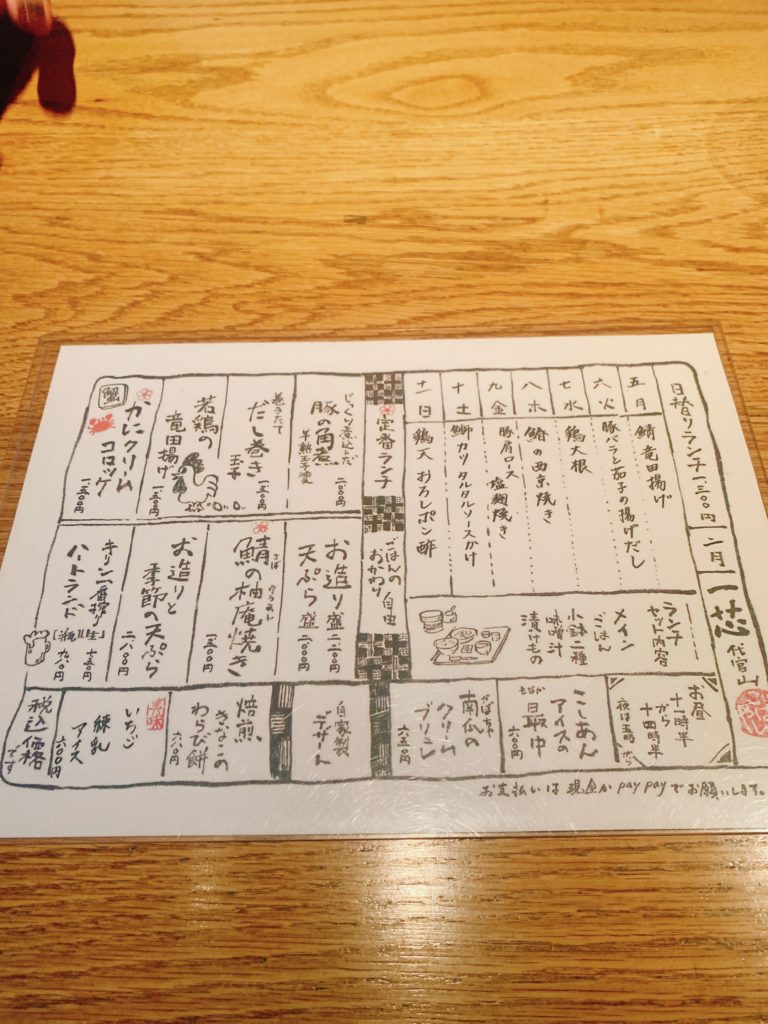 日替りランチ 一三〇〇円
二月
一芯
代官山
五 月 鯖竜田揚げ
六 火 豚バラと茄子の揚げだし
七 水 鶏大根
八 木 鰆の西京焼き
九 金 豚肩ロース 塩麹焼き
十 土 鰤カツ タルタルソースかけ
十一 日 鶏天 おろしポン酢
ランチ
セット内容
メイン
ごはん
小鉢二種
味噌汁
漬けもの
定番ランチ
ごはんの
おかわり
自由
じっくり煮込んだ
豚の角煮
半熟玉子添え
巻きたて
だし巻き
玉子
若鶏の
竜田揚げ
かにクリーム
コロッケ
一五〇〇円
お造り盛
天ぷら盛
二二〇〇円
二一〇〇円
さば
ゆうあん
鯖の柚庵焼き
一五〇〇円
お造りと
季節の天ぷら
二八〇〇円
キリン一番搾り
ハートランド
【生】
【瓶】
お昼
十一時半
から
十四時半
夜は五時から
こしあん
アイスの
もなか
最中
かぼちゃ
南瓜の
クリーム
ブリュレ
六五〇円
自家製
デザート
焙煎
きなこの
わらび餅
六八〇円
美味
いちご
練乳
アイス
六〇〇円
税込
価格
です
お支払いは現金かpaypayでお願いします。